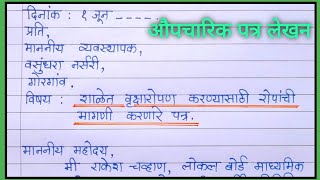 दिनांक : १ जून -----.
औपचारिक पत्र लेखन
प्रति,
माननीय व्यवस्थापक,
वसुंधरा नर्सरी,
गोरगांव.
विषय : शाळेत वृक्षारोपण करण्यासाठी रोपांची
मागणी करणारे पत्र.
माननीय महोदय,
मी राकेश चव्हाण, लोकल बोर्ड माध्यमिक